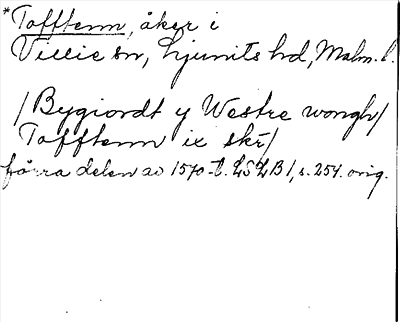 *Tofftenn, åker i
Villie sn, Ljunits hd, Malm. l.
/Bygiordt y Westre wongh/
Tofftenn ix skr/
förra delen av 1570-t. LSLB1, s. 254. orig.